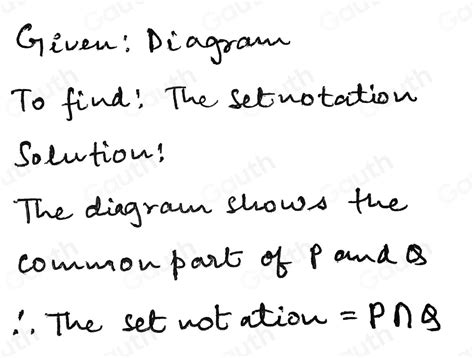 Given: Diagram
To find: The set notation
Solution:
The diagram shows the
common part of P and Q
∴ The set notation = P∩Q